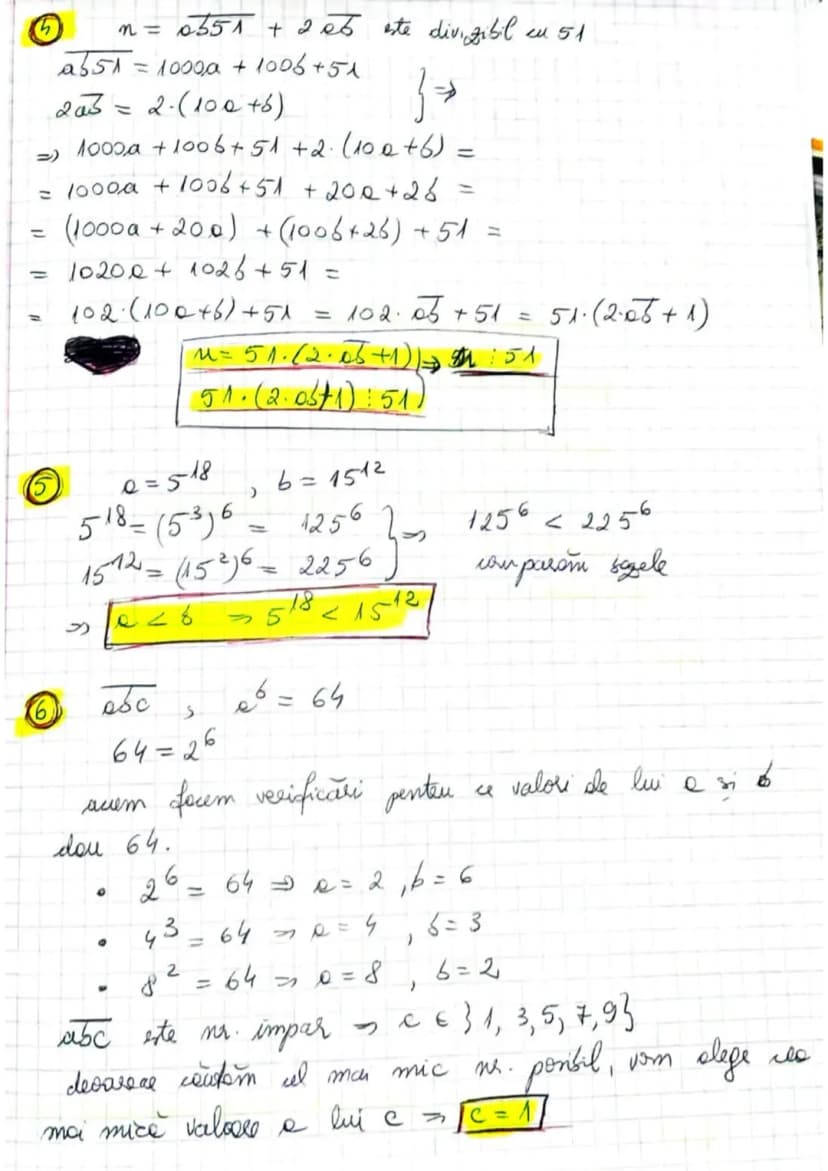 4) n = ab51 + 2ab este divizibil cu 51
ab51 = 1000a + 100b + 51
2ab = 2·(10a+b) } ⇒
⇒ 1000a + 100b + 51 + 2·(10a+b) =
= 1000a + 100b + 51 + 20a + 2b =
= (1000a + 20a) + (100b + 2b) + 51 =
= 1020a + 102b + 51 =
= 102·(10a+b) + 51 = 102·ab + 51 = 51·(2·ab + 1)
n = 51·(2·ab+1) | ⇒ n ⋮ 51
51·(2·ab+1) ⋮ 51
5) a = 5^18 , b = 15^12
5^18 = (5^3)^6 = 125^6 } ⇒ 125^6 < 225^6
15^12 = (15^2)^6 = 225^6 comparăm bazele
⇒ a < b ⇒ 5^18 < 15^12
6) abc , a^b = 64
64 = 2^6
acum facem verificări pentru ce valori de lui a și b
dau 64.
• 2^6 = 64 ⇒ a = 2 , b = 6
• 4^3 = 64 ⇒ a = 4 , b = 3
• 8^2 = 64 ⇒ a = 8 , b = 2
abc este nr. impar ⇒ c ∈ {1, 3, 5, 7, 9}
deoarece căutăm cel mai mic nr. posibil, vom alege cea
mai mică valoare a lui c ⇒ c = 1